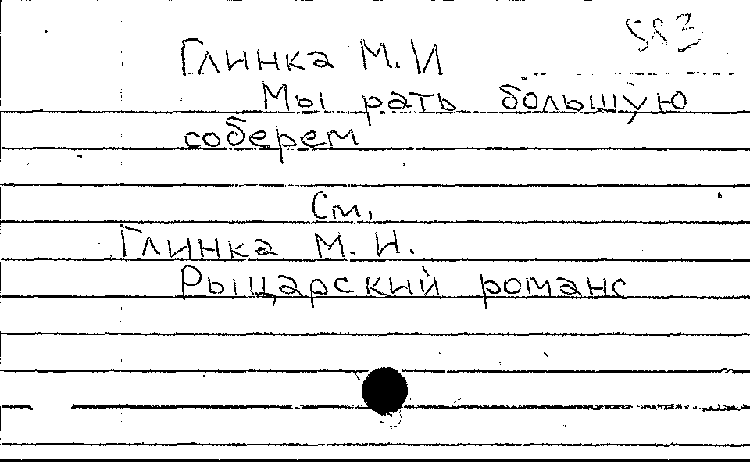 583
Глинка М.И
Мы рать большую
соберем
См.
Глинка М.И.
Рыцарский романс